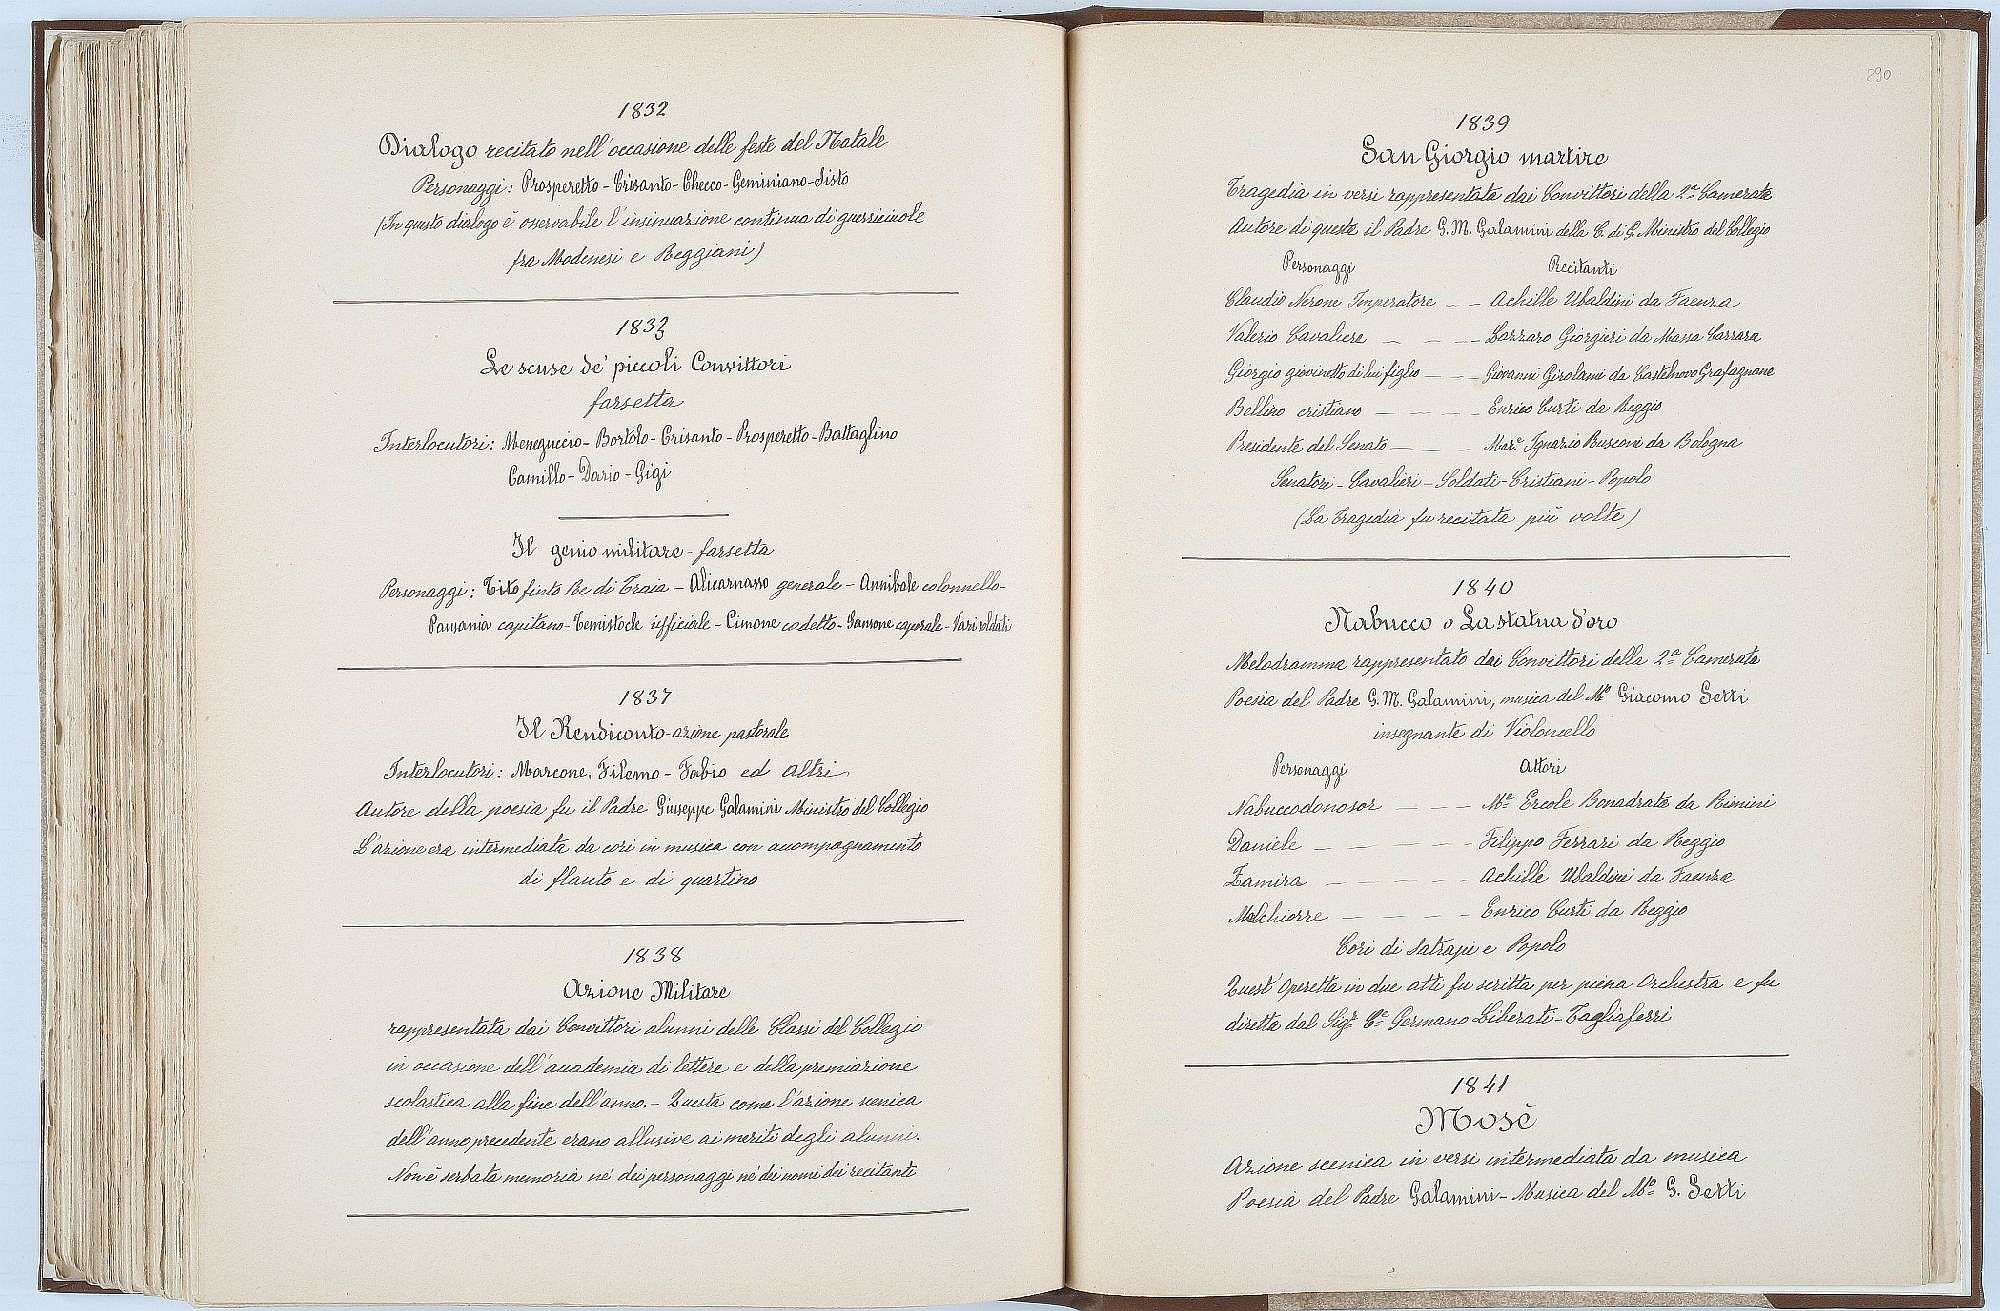 1832
Dialogo recitato nell'occasione delle feste del Natale
Personaggi: Prosperetto - Crisanto - Checco - Geminiano - Sisto
(In questo dialogo è osservabile l'insinuazione continua di guerricciole
fra Modenesi e Reggiani)
1833
Le scuse de' piccoli Convittori
farsetta
Interlocutori: Meneguccio - Bortolo - Crisanto - Prosperetto - Battaglino
Camillo - Dario - Gigi
Il genio militare - farsetta
Personaggi: Tito finto Re di Traia - Alicarnasso generale - Annibale colonnello -
Pausania capitano - Temistocle ufficiale - Cimone cadetto - Sansone caporale - Vari soldati
1837
Il Rendiconto - azione pastorale
Interlocutori: Marcone, Filemo - Fabio ed altri
Autore della poesia fu il Padre Giuseppe Galamini Ministro del Collegio
L'azione era intermediata da cori in musica con accompagnamento
di flauto e di quartino
1838
Azione Militare
rappresentata dai Convittori alunni delle Classi del Collegio
in occasione dell'accademia di lettere e della premiazione
scolastica alla fine dell'anno. - Questa come l'azione scenica
dell'anno precedente erano allusive ai meriti degli alunni.
Non è serbata memoria nè dei personaggi nè dei nomi dei recitanti
290
1839
San Giorgio martire
Tragedia in versi rappresentata dai Convittori della 2ª Camerata
Autore di questa il Padre G. M. Galamini della C. di G. Ministro del Collegio
Personaggi Recitanti
Claudio Nerone Imperatore - - Achille Ubaldini da Faenza
Valerio Cavaliere - - - - Lazzaro Giorgieri da Massa Carrara
Giorgio giovinetto di lui figlio - - - Giovanni Girolami da Castelnovo Grafagnane
Bellino cristiano - - - - Enrico Curti da Reggio
Presidente del Senato - - - Mar.e Ignazio Busconi da Bologna
Senatori - Cavalieri - Soldati - Cristiani - Popolo
(La Tragedia fu recitata più volte)
1840
Nabucco o La statua d'oro
Melodramma rappresentato dai Convittori della 2ª Camerata
Poesia del Padre G. M. Galamini, musica del Mº Giacomo Setti
insegnante di Violoncello
Personaggi Attori
Nabuccodonosor - - - M.e Ercole Bonadrata da Rimini
Daniele - - - - - Filippo Ferrari da Reggio
Zamira - - - - - Achille Ubaldini da Faenza
Melchiorre - - - - Enrico Curti da Reggio
Cori di Satrapi e Popolo
Quest'Operetta in due atti fu scritta per piena Orchestra e fu
diretta dal Sigr. C.e Germano Liberati-Tagliaferri
1841
Mosè
Azione scenica in versi intermediata da musica
Poesia del Padre Galamini - Musica del Mº G. Setti